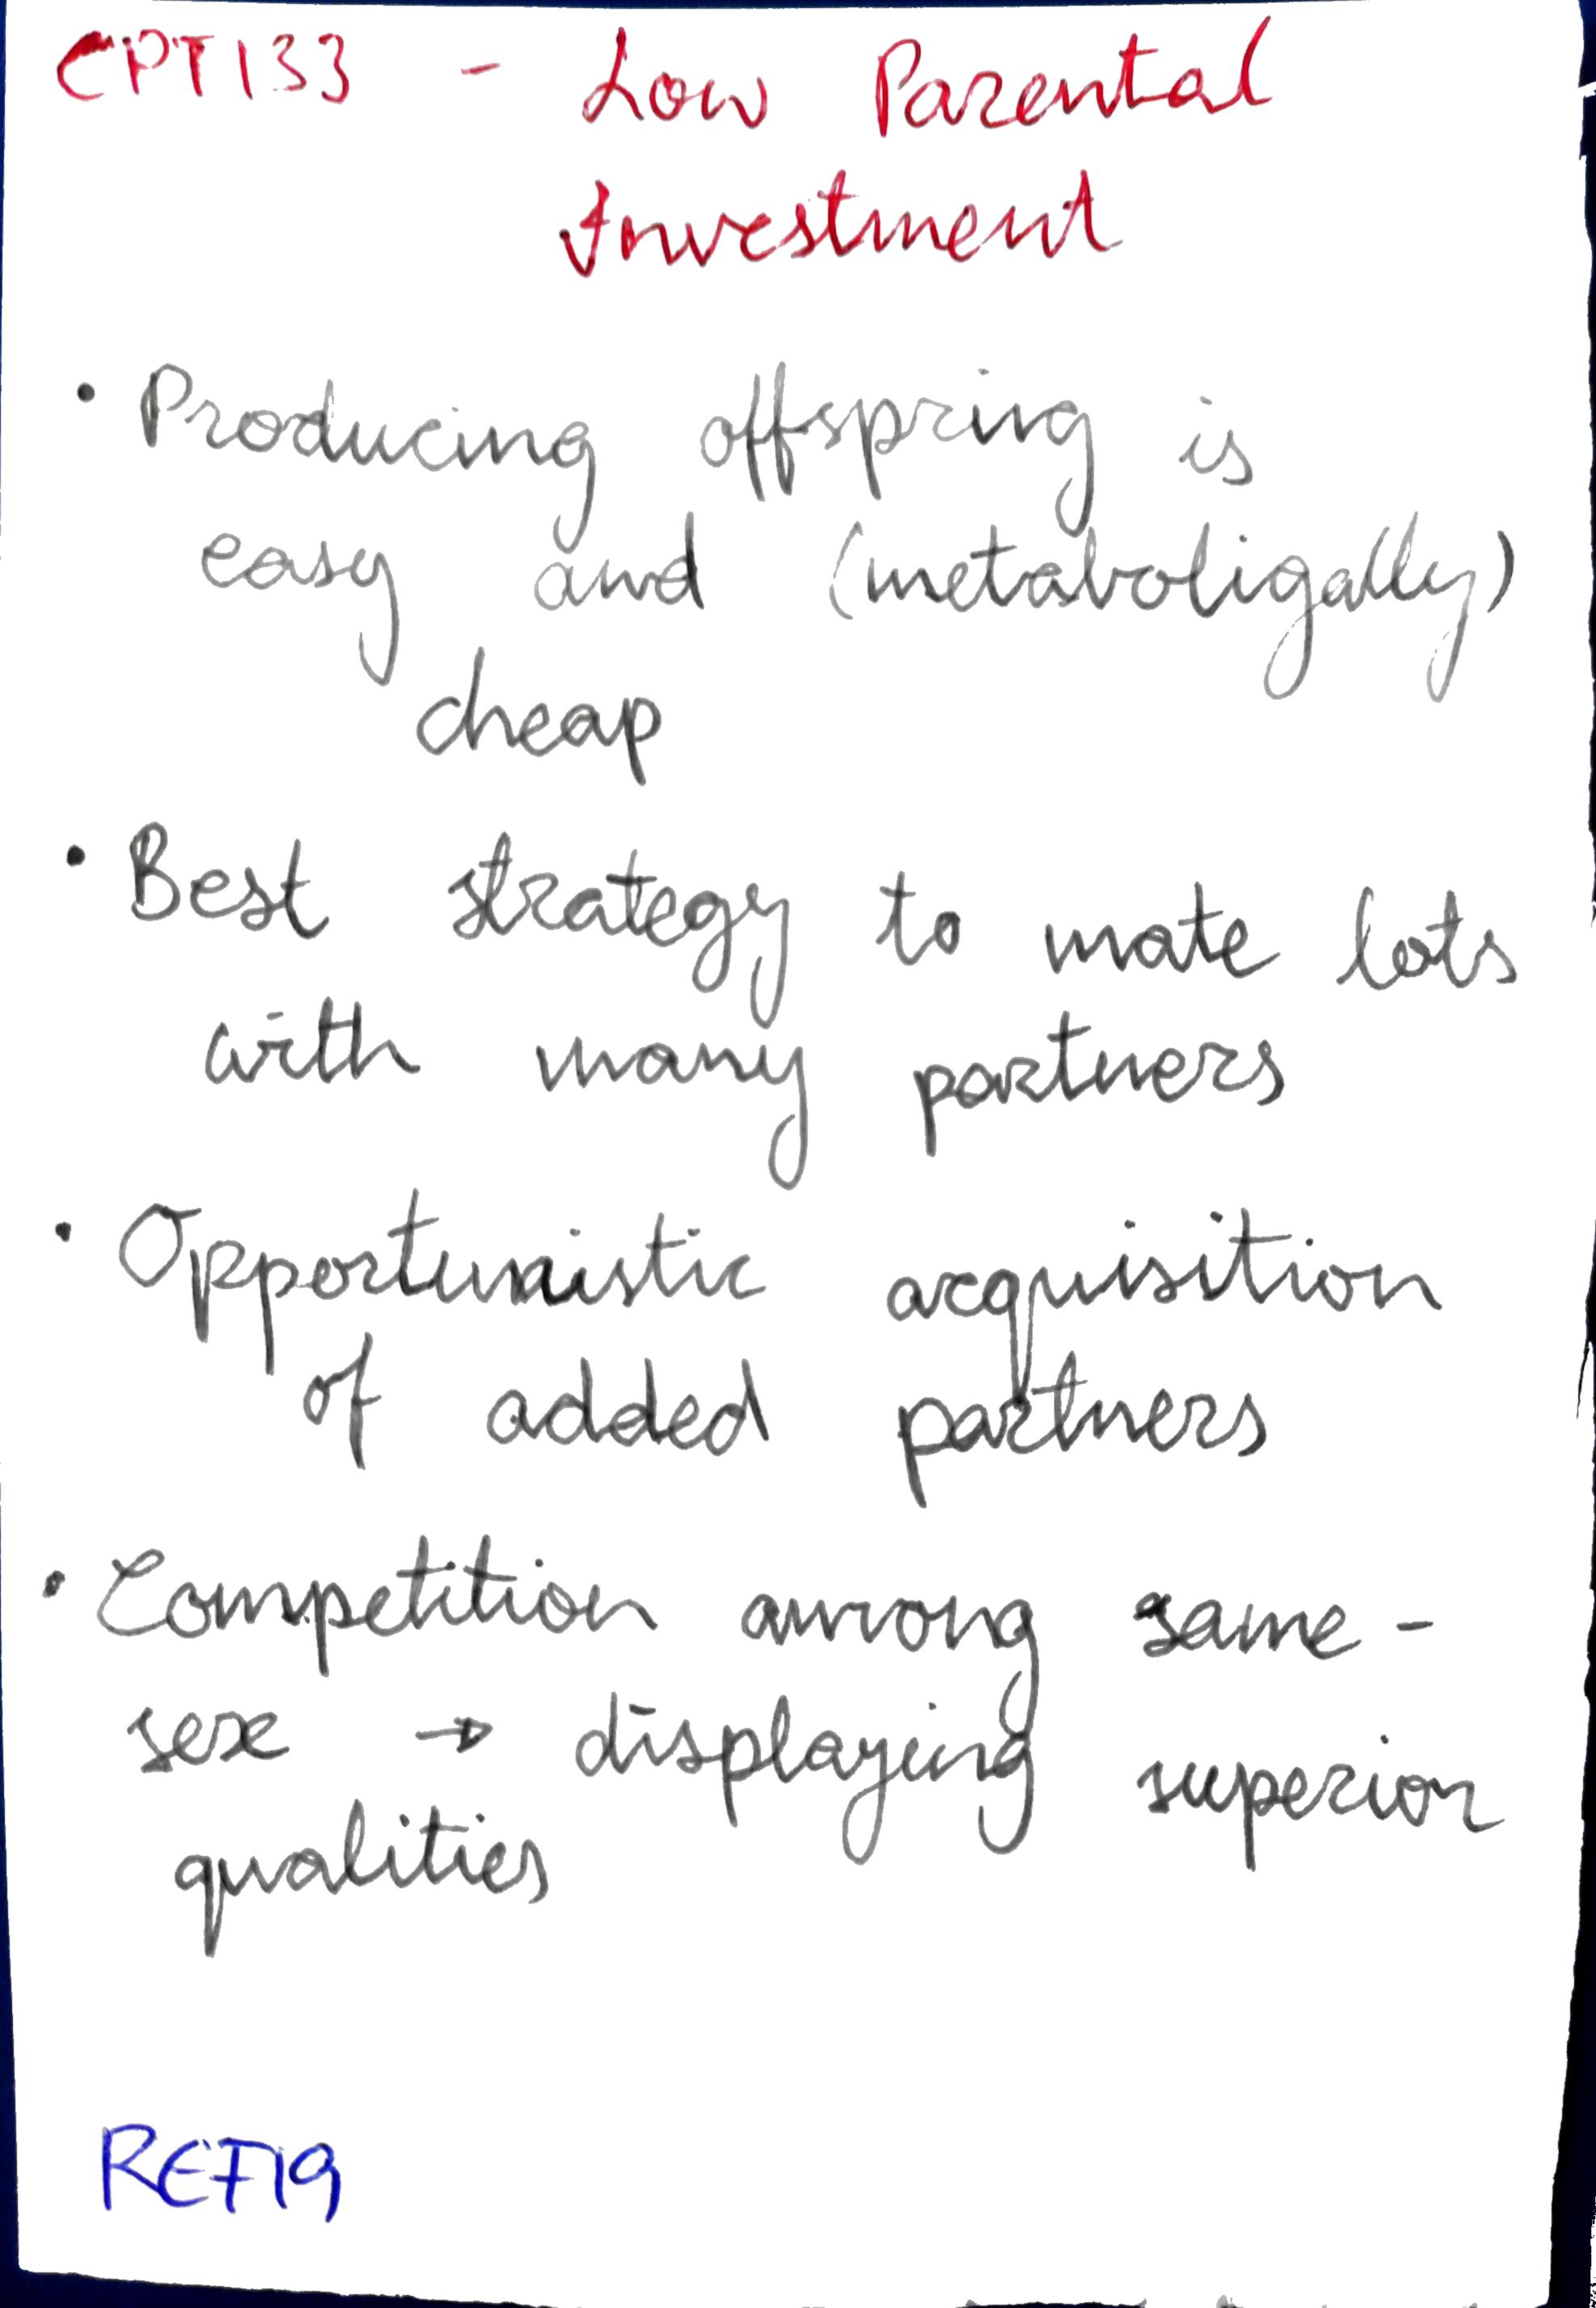 CPT133 - Low Parental
Investment
• Producing offspring is
easy and (metaboligally)
cheap
• Best strategy to mate lots
with many partners
• Opportunistic acquisition
of added partners
• Competition among same-
sex → displaying superior
qualities
REF19